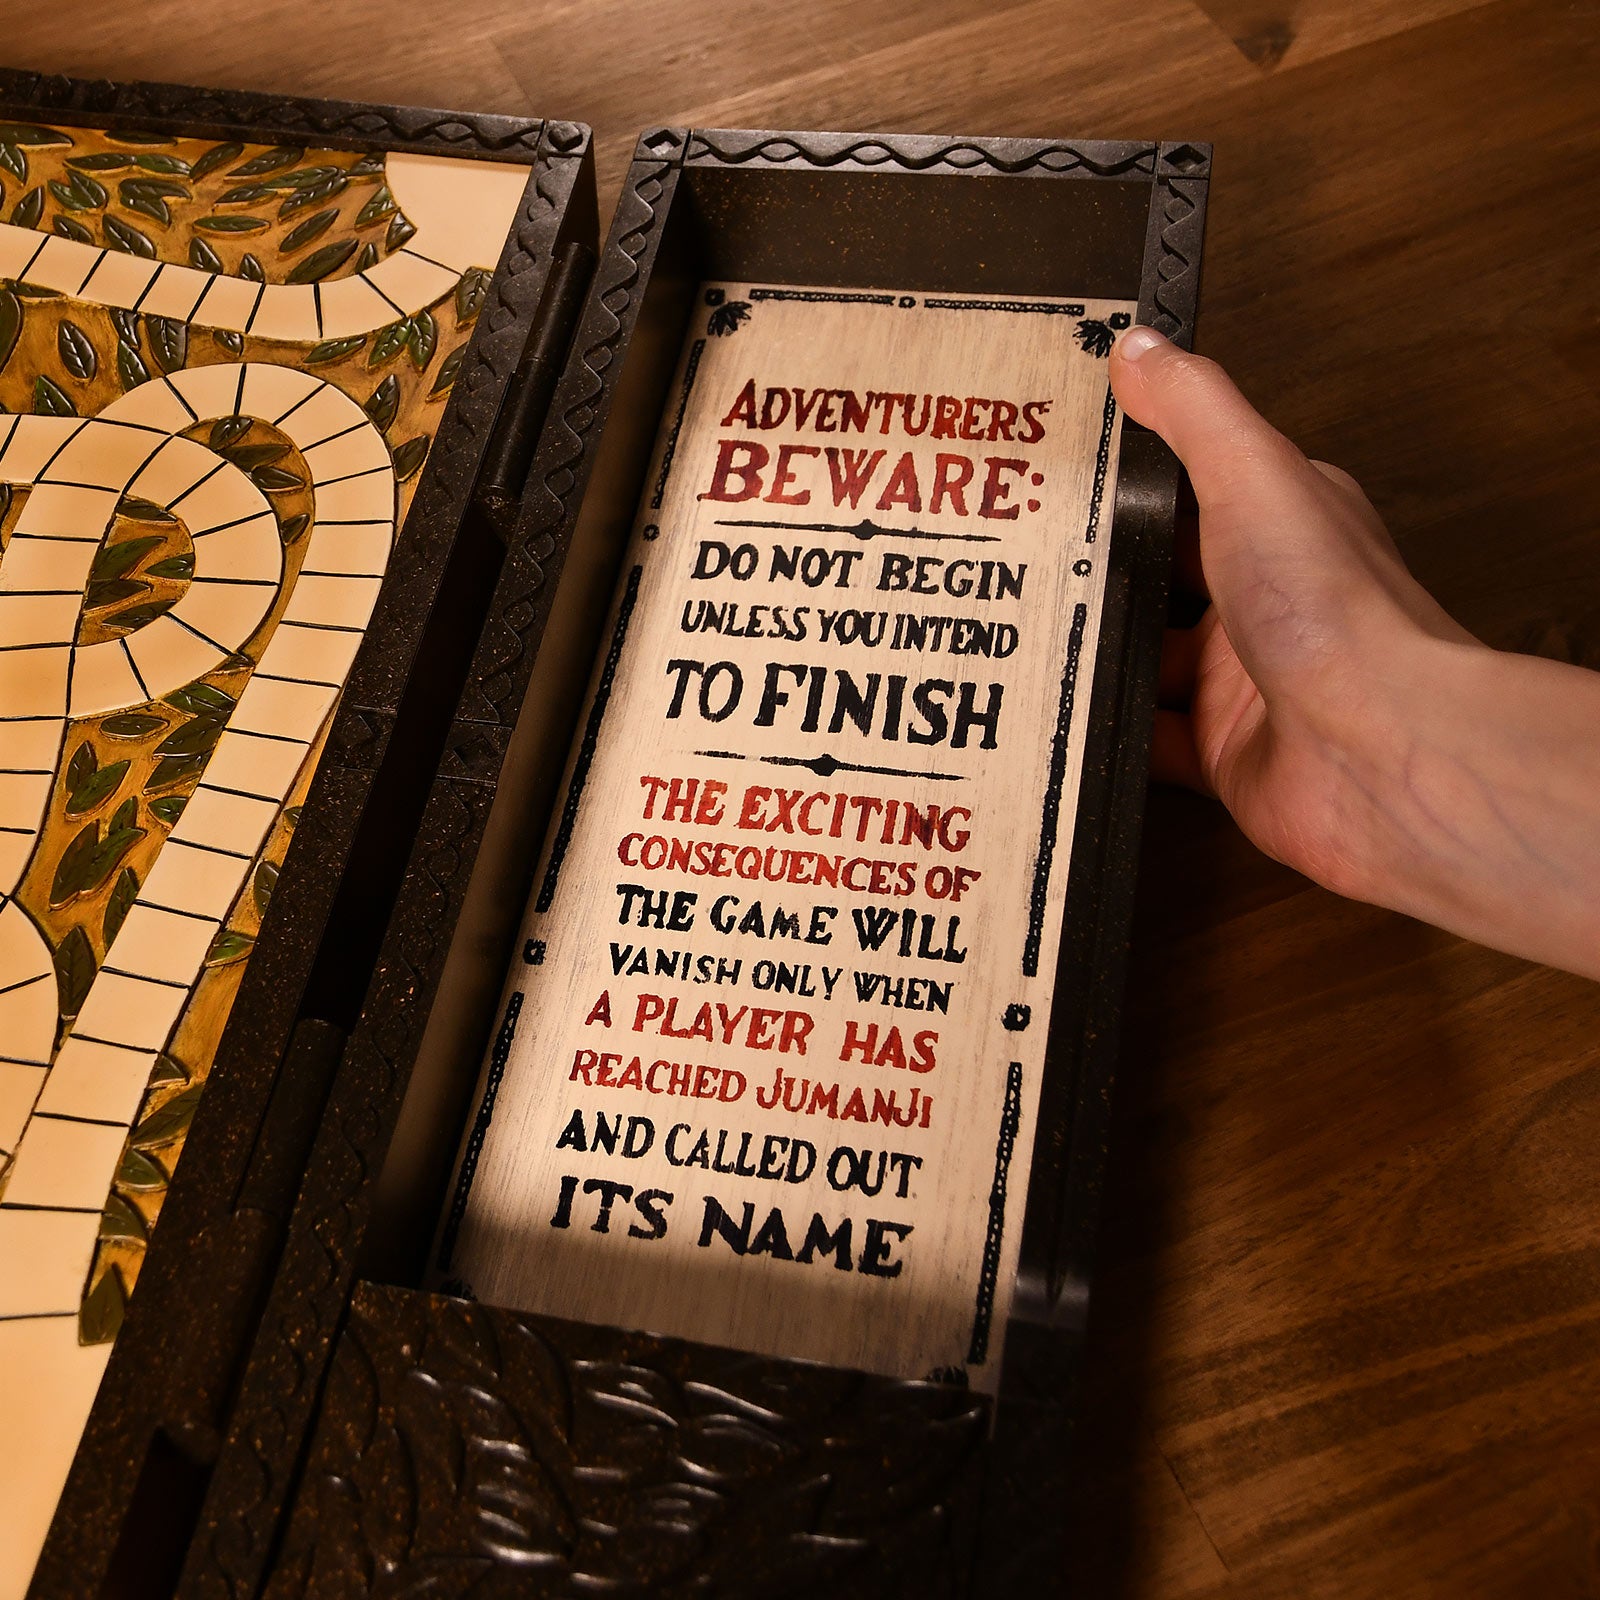 ADVENTURERS
BEWARE:
DO NOT BEGIN
UNLESS YOU INTEND
TO FINISH
THE EXCITING
CONSEQUENCES OF
THE GAME WILL
VANISH ONLY WHEN
A PLAYER HAS
REACHED JUMANJI
AND CALLED OUT
ITS NAME